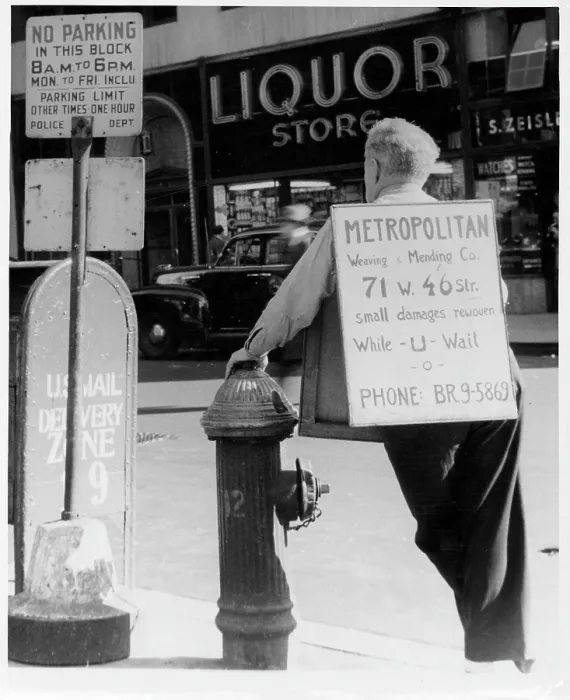 NO PARKING
IN THIS BLOCK
8 A.M. TO 6 P.M.
MON. TO FRI. INCLU
PARKING LIMIT
OTHER TIMES ONE HOUR
POLICE DEPT.
LIQUOR
STORE
S. ZEISLE
WATCHES
METROPOLITAN
Weaving & Mending Co.
71 W. 46 Str.
small damages rewoven
While - U - Wait
- o -
PHONE: BR. 9-5869
U.S. MAIL
DELIVERY
ZONE
9
12